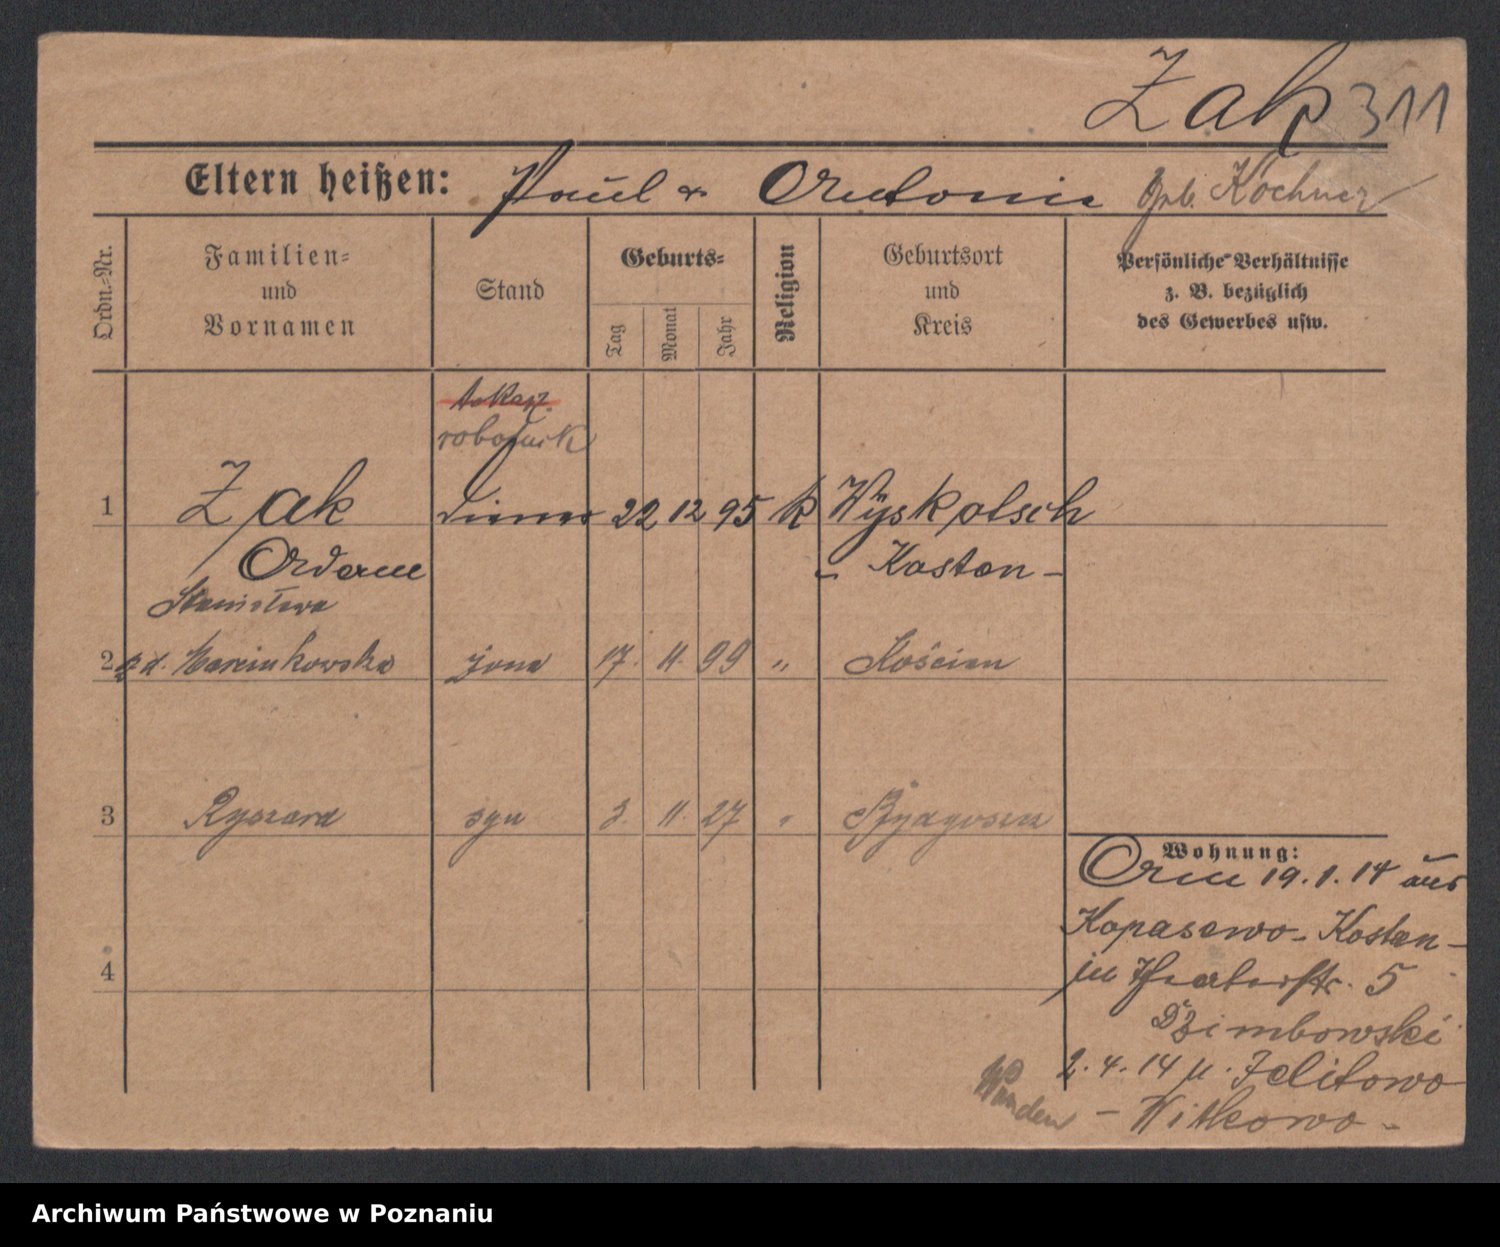 Zak 311
Eltern heißen: Paul & Antonie geb. Kochner
Ordn.-Nr.
Familien-
und
Vornamen
Stand
Geburts-
Tag
Monat
Jahr
Religion
Geburtsort
und
Kreis
Persönliche Verhältnisse
z. B. bezüglich
des Gewerbes usw.
robotnik
1 Zak Diener 22 12 95 k Wyskotsch
Adam - Kosten -
Stanisława
2 z d. Marcinkowska żona 17. 11. 99 " Kościan
3 Ryszard syn 3. 11. 27 "
4
Wohnung:
Am 19. 1. 14 aus
Kopasewo - Kosten -
in Theaterstr. 5
Dzimbowski
2. 4. 14 n. Jelitowo
- Witkowo -
Archiwum Państwowe w Poznaniu